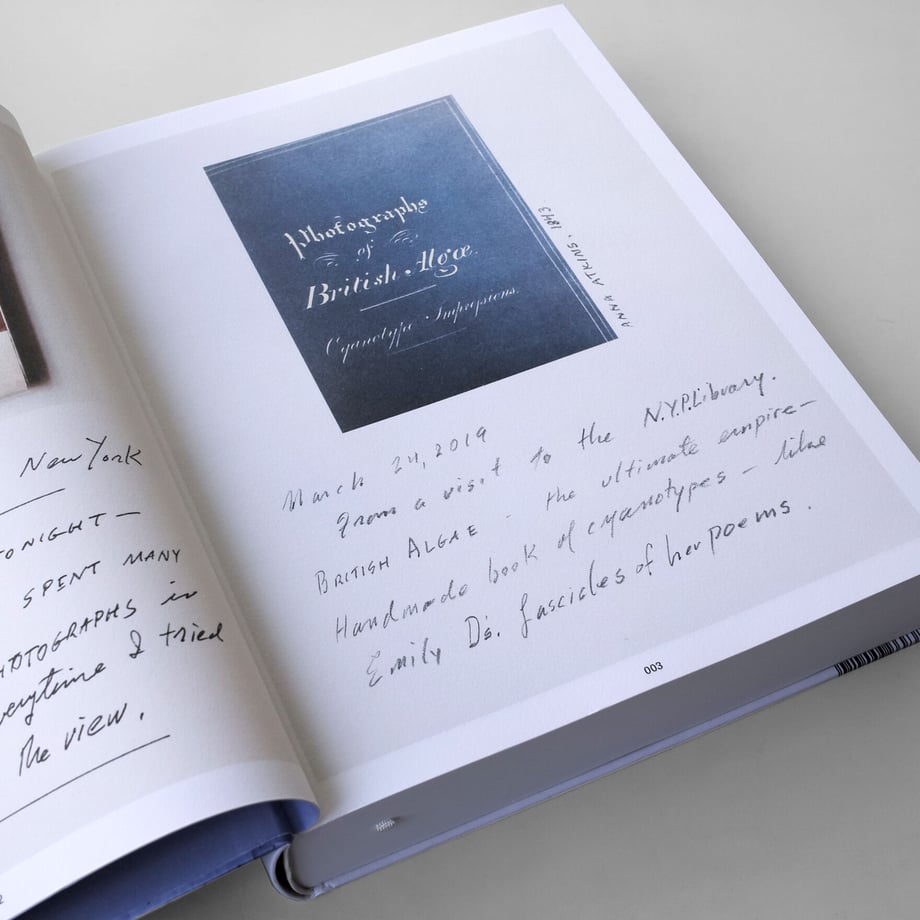 New York
TONIGHT—
SPENT MANY
PHOTOGRAPHS in
everytime I tried
the view.
Photographs
of
British Algæ.
Cyanotype Impressions.
ANNA ATKINS, 1843
March 24, 2019
From a visit to the N.Y.P.Library.
BRITISH ALGAE - the ultimate empire—
Handmade book of cyanotypes — like
Emily D's. fascicles of her poems.
003